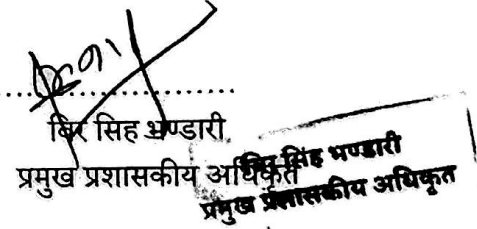 विर सिह भण्डारी
प्रमुख प्रशासकीय अधिकृत
विर सिंह भण्डारी
प्रमुख प्रशासकीय अधिकृत